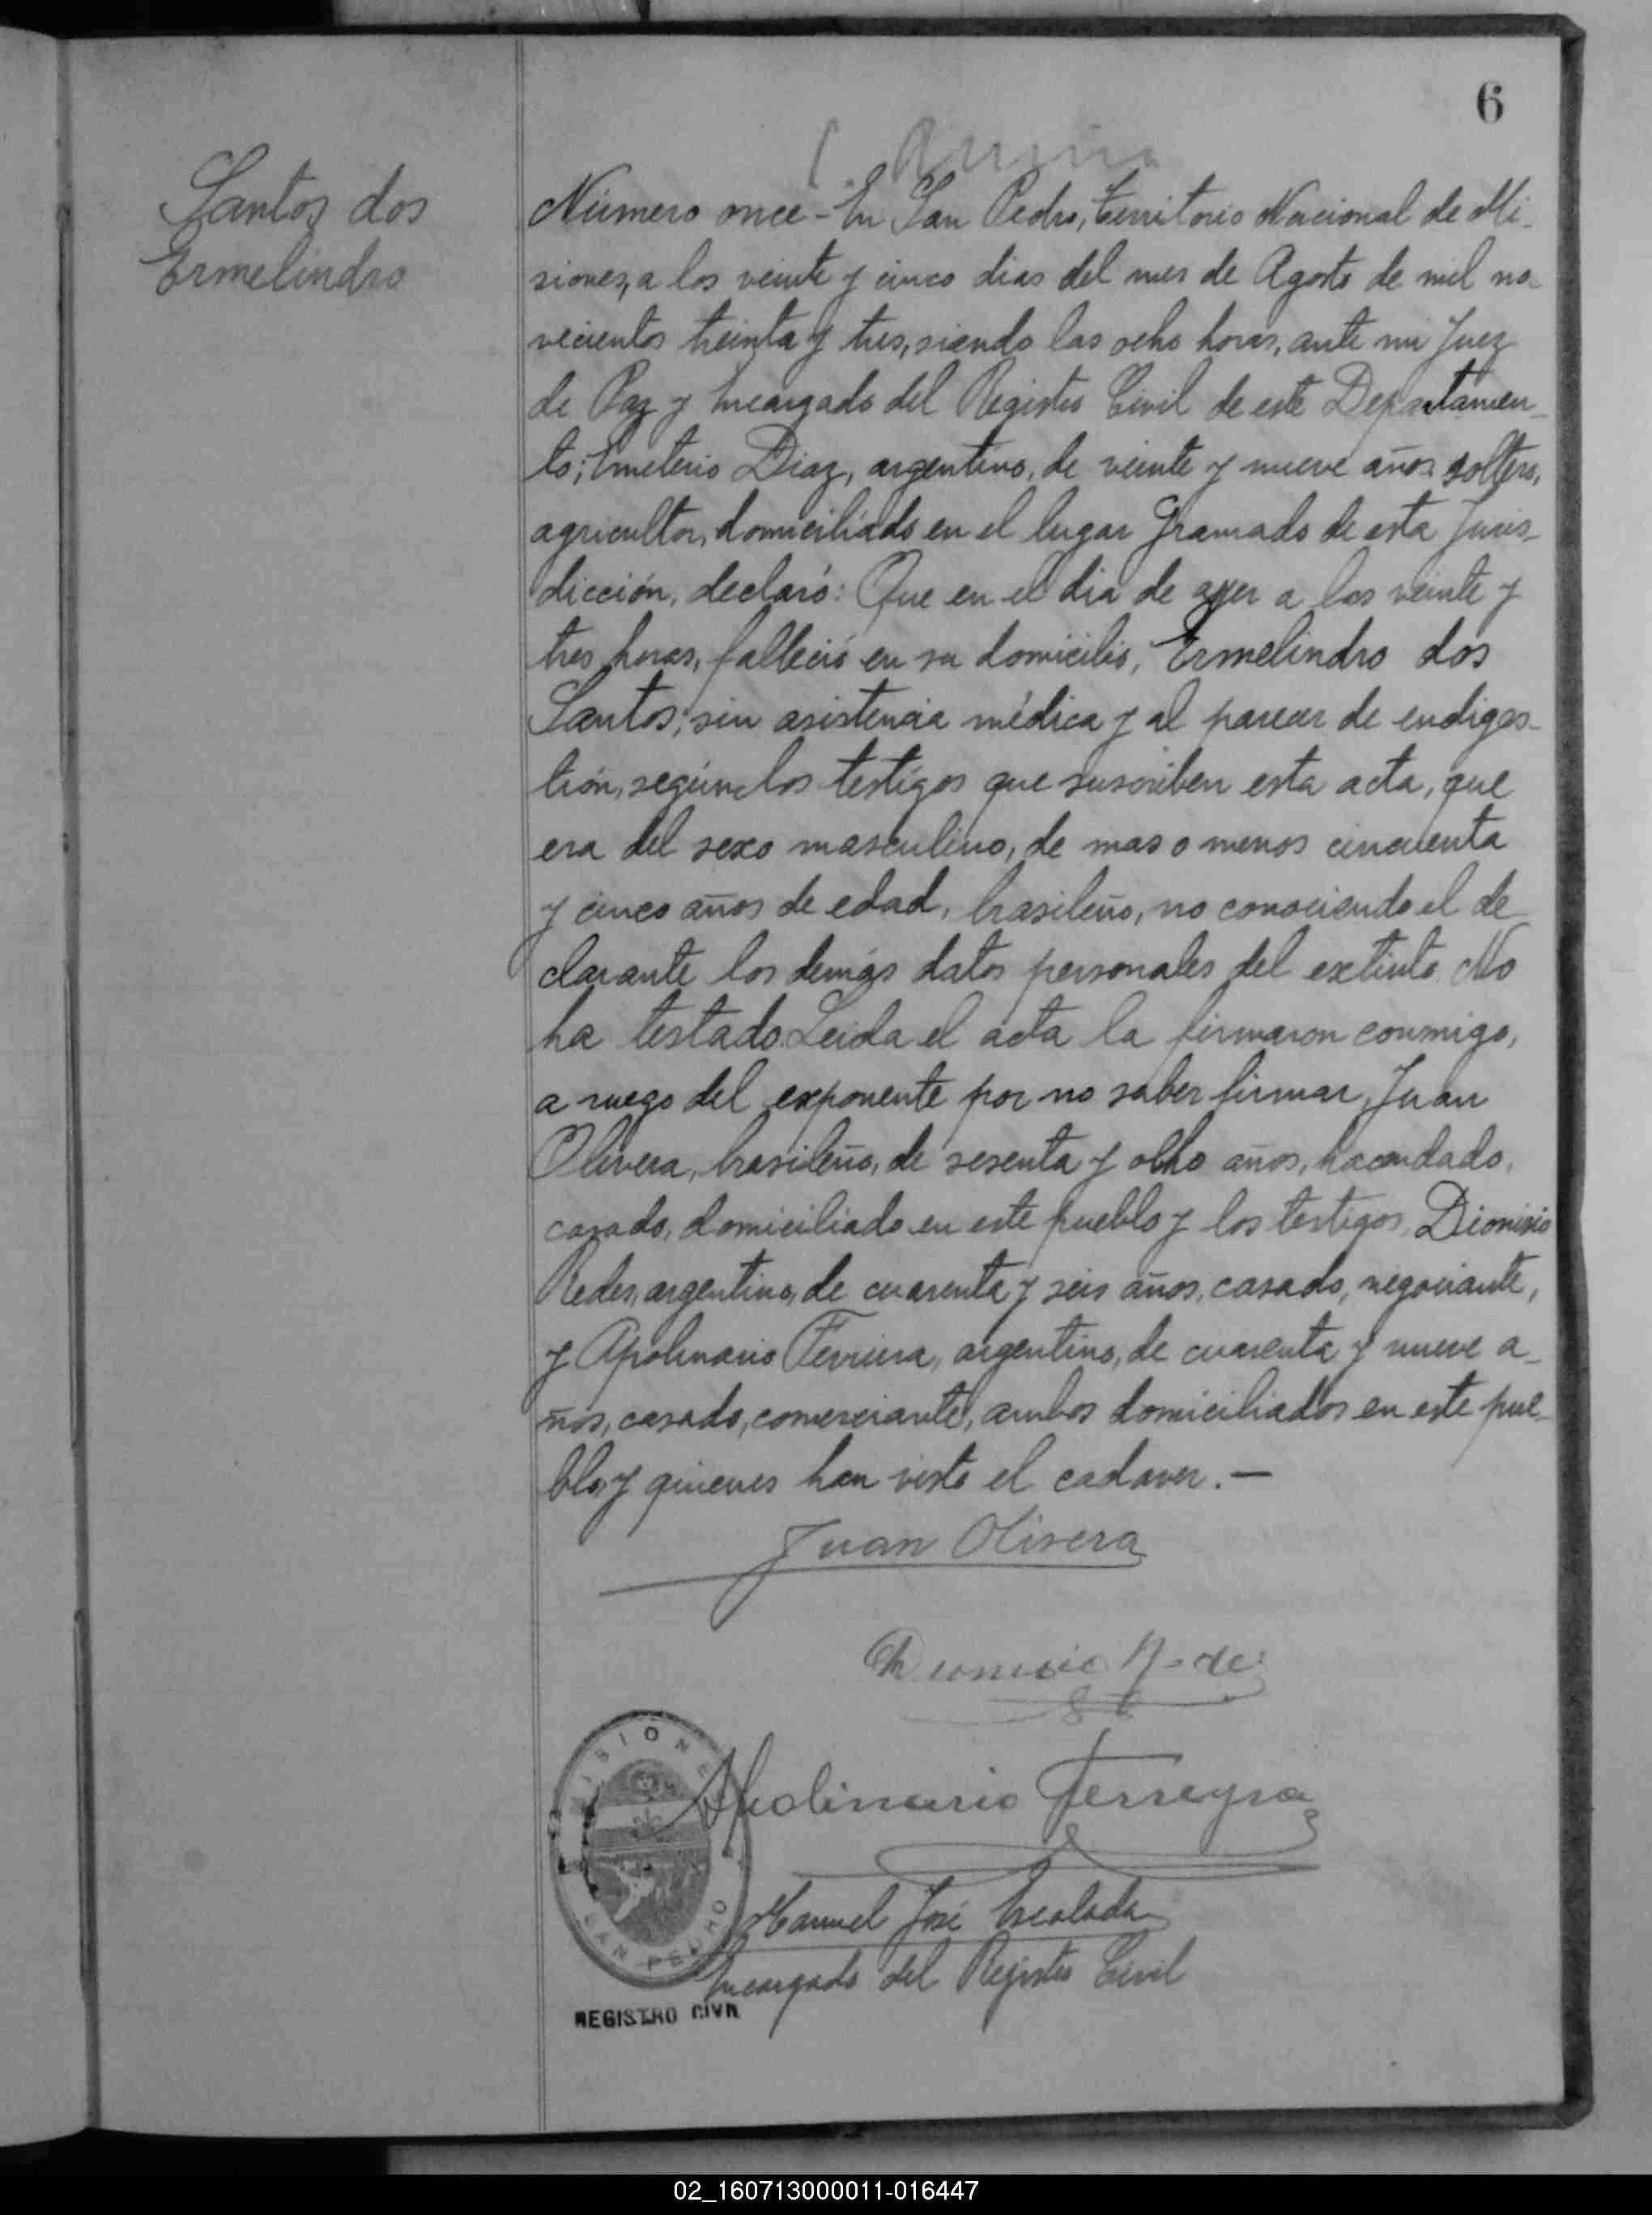 6
Santos dos
Ermelindro
Número once - En San Pedro, Territorio Nacional de Mi-
siones, a los veinte y cinco dias del mes de Agosto de mil no-
vecientos treinta y tres, siendo las ocho horas, ante mi Juez
de Paz y Encargado del Registro Civil de este Departamen-
to; Emeterio Diaz, argentino, de veinte y nueve años, soltero,
agricultor, domiciliado en el lugar Gramado de esta Juris-
dicción, declaró: Que en el dia de ayer a las veinte y
tres horas, falleció en su domicilio, Ermelindro dos
Santos; sin asistencia médica y al parecer de endiges-
tión, según los testigos que suscriben esta acta, que
era del sexo masculino, de mas o menos cincuenta
y cinco años de edad, brasileño, no conociendo el de-
clarante los demás datos personales del extinto. No
ha testado. Leida el acta la firmaron conmigo,
a ruego del exponente por no saber firmar, Juan
Olivera, brasileño, de sesenta y ocho años, hacendado,
casado, domiciliado en este pueblo y los testigos, Dionisio
Redes, argentino, de cuarenta y seis años, casado, negociante,
y Apolinario Ferriera, argentino, de cuarenta y nueve a-
ños, casado, comerciante, ambos domiciliados en este pue-
blo, y quienes han visto el cadaver. —
Juan Olivera
Dionisio
Apolinario Ferreyra
Manuel José
Encargado del Registro Civil
MISIONES
SAN PEDRO
REGISTRO CIVIL
02_160713000011-016447